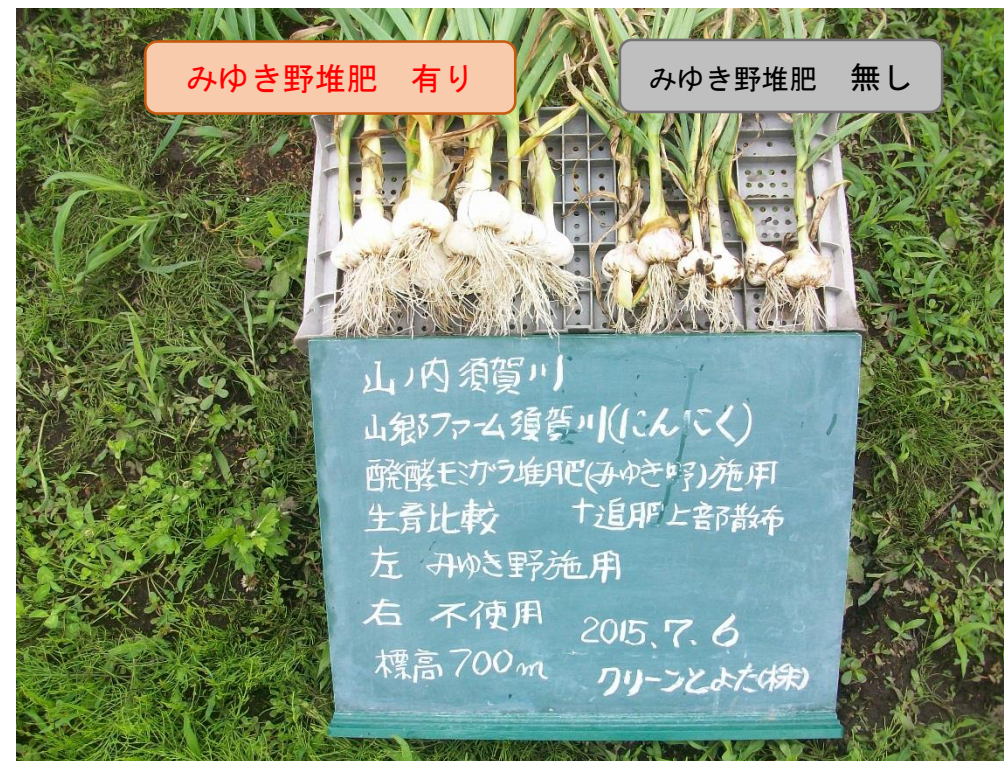 みゆき野堆肥　有り
みゆき野堆肥　無し
山ノ内須賀川
山郷ファーム須賀川(にんにく)
醗酵モミガラ堆肥(みゆき野)施用
生育比較　＋追肥上部散布
左　みゆき野施用
右　不使用
2015.7.6
標高700m
クリーンとよた(株)